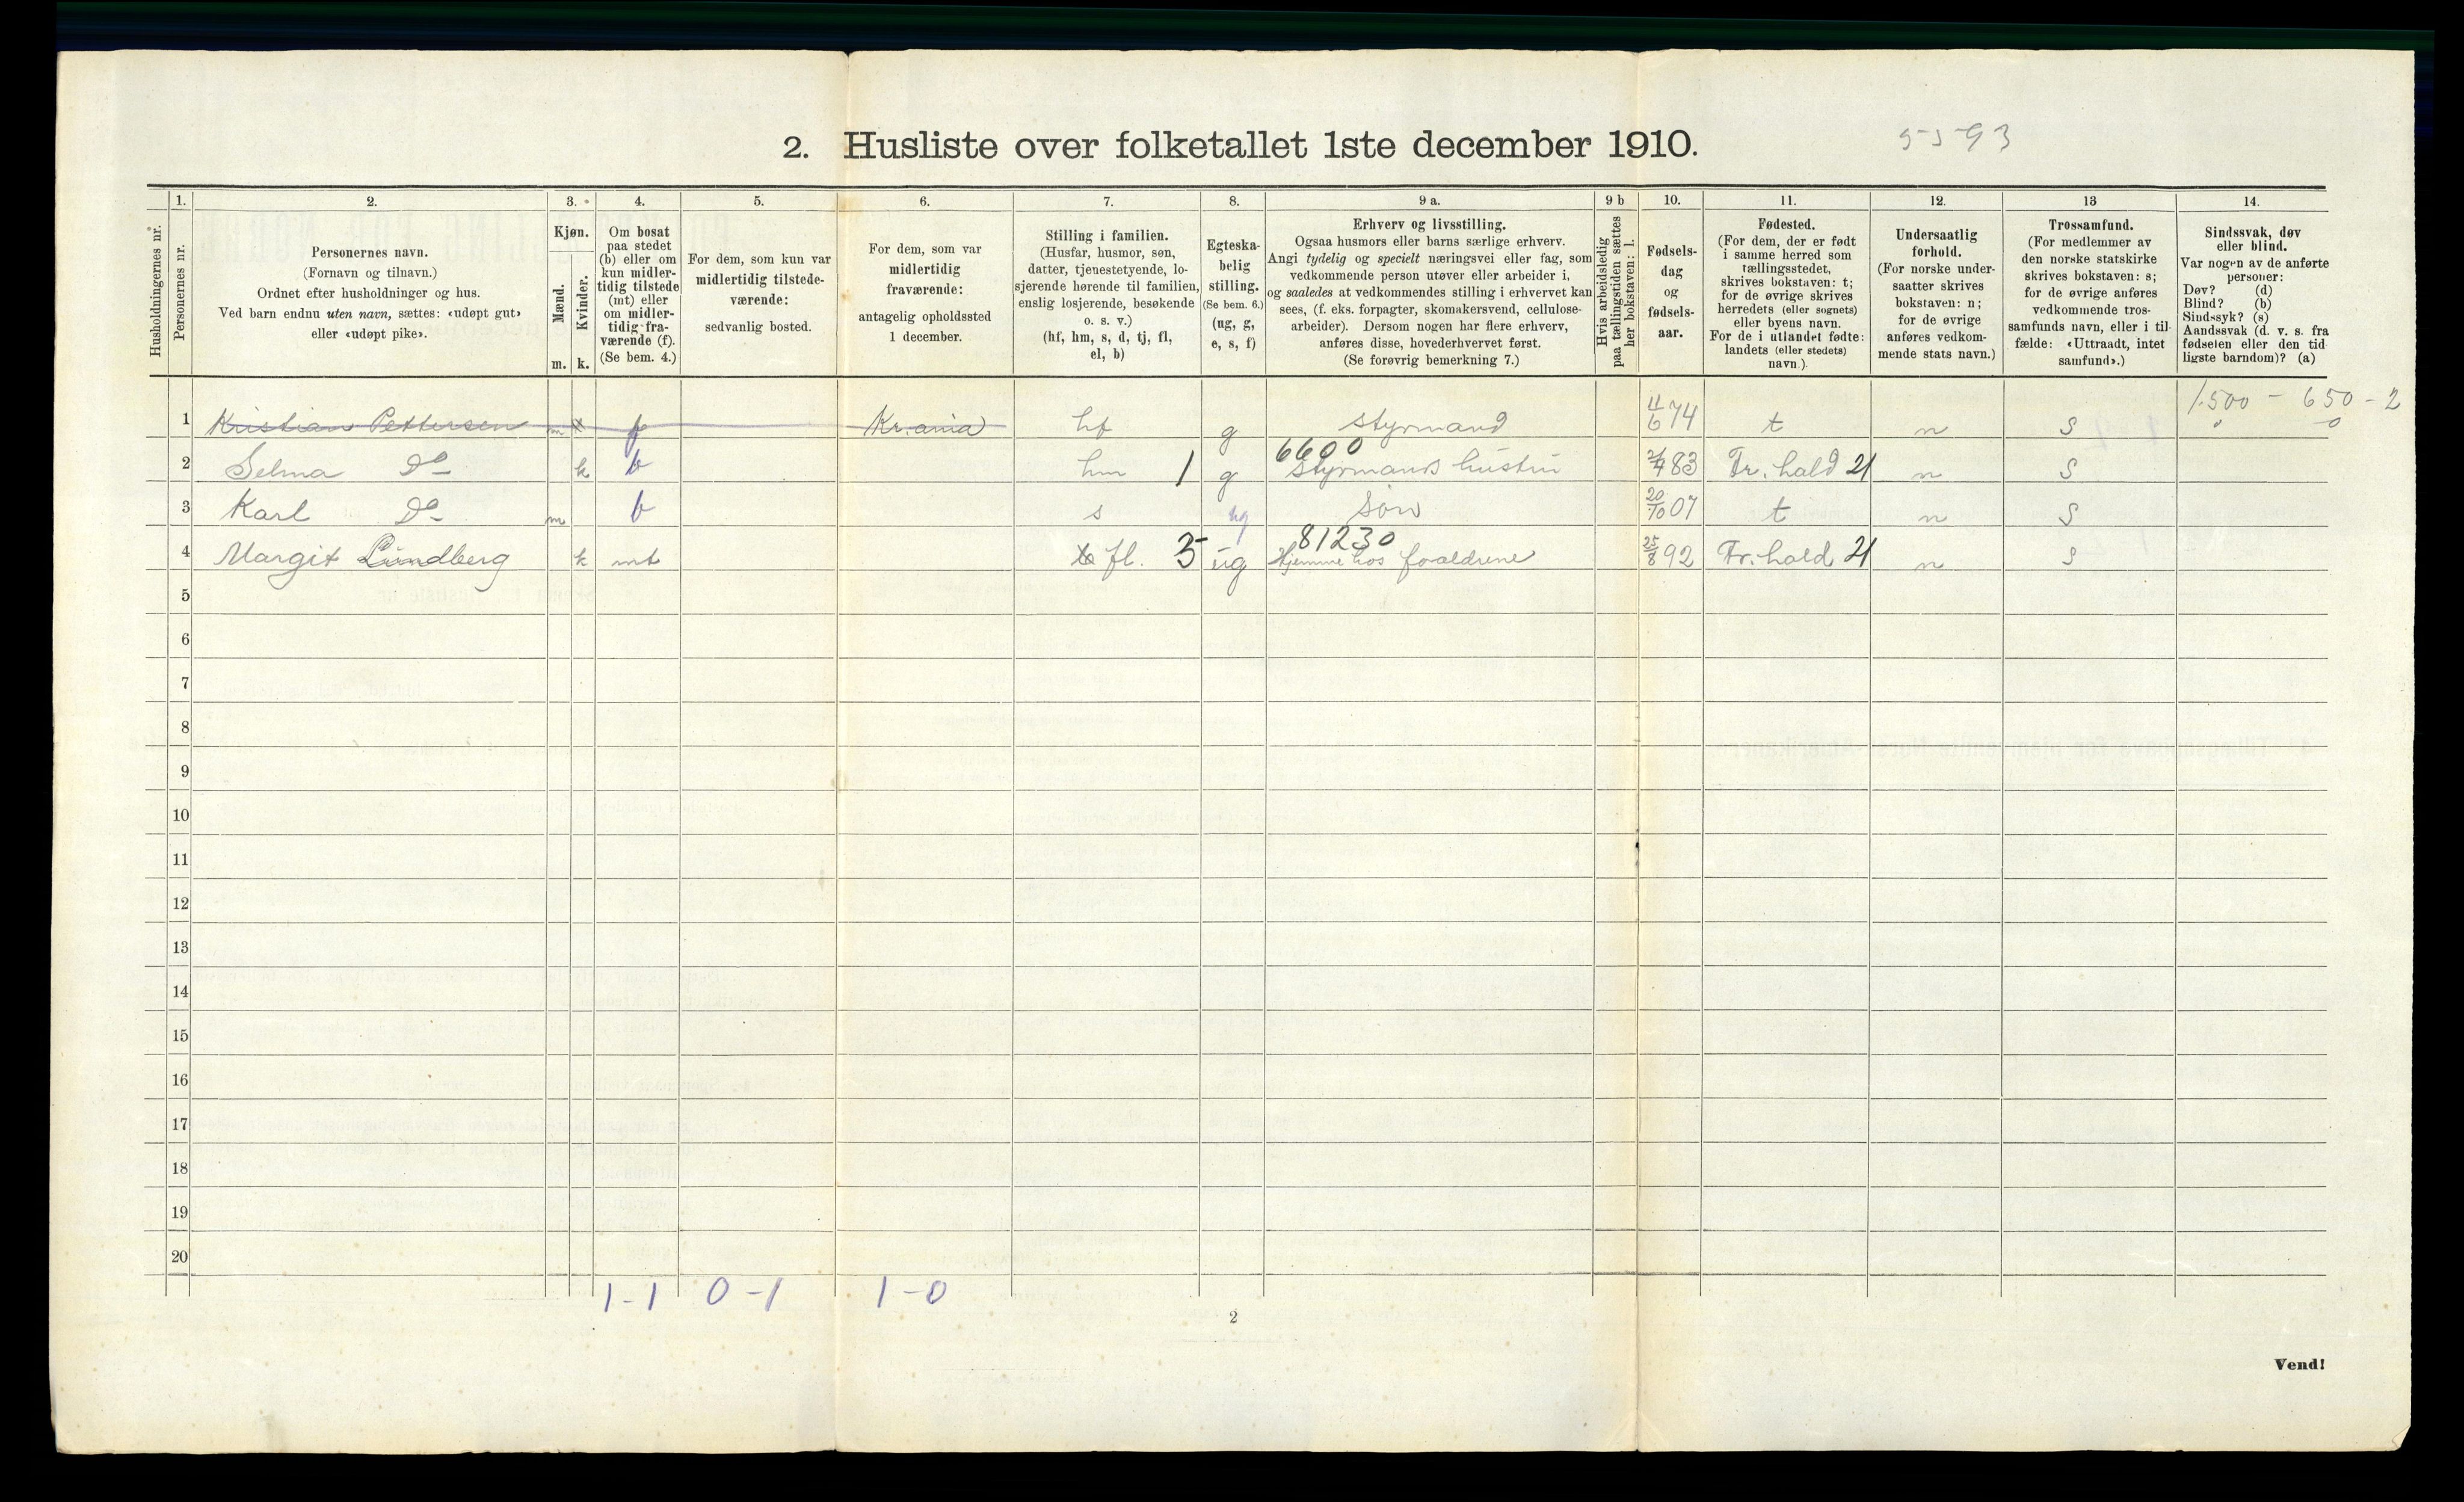 2. Husliste over folketallet 1ste december 1910.
1. 2. 3. 4. 5. 6. 7. 8. 9 a. 9 b 10. 11. 12. 13 14.
Husholdningernes nr.
Personernes nr.
Personernes navn.
(Fornavn og tilnavn.)
Ordnet efter husholdninger og hus.
Ved barn endnu uten navn, sættes: «udøpt gut»
eller «udøpt pike».
Kjøn.
Mænd.
Kvinder.
m. k.
Om bosat
paa stedet
(b) eller om
kun midler-
tidig tilstede
(mt) eller
om midler-
tidig fra-
værende (f).
(Se bem. 4.)
For dem, som kun var
midlertidig tilstede-
værende:
sedvanlig bosted.
For dem, som var
midlertidig
fraværende:
antagelig opholdssted
1 december.
Stilling i familien.
(Husfar, husmor, søn,
datter, tjenestetyende, lo-
sjerende hørende til familien,
enslig losjerende, besøkende
o. s. v.)
(hf, hm, s, d, tj, fl,
el, b)
Egteska-
belig
stilling.
(Se bem. 6.)
(ug, g,
e, s, f)
Erhverv og livsstilling.
Ogsaa husmors eller barns særlige erhverv.
Angi tydelig og specielt næringsvei eller fag, som
vedkommende person utøver eller arbeider i,
og saaledes at vedkommendes stilling i erhvervet kan
sees, (f. eks. forpagter, skomakersvend, cellulose-
arbeider). Dersom nogen har flere erhverv,
anføres disse, hovederhvervet først.
(Se forøvrig bemerkning 7.)
Hvis arbeidsledig
paa tællingstiden sættes
her bokstaven: l.
Fødsels-
dag
og
fødsels-
aar.
Fødested.
(For dem, der er født
i samme herred som
tællingsstedet,
skrives bokstaven: t;
for de øvrige skrives
herredets (eller sognets)
eller byens navn.
For de i utlandet fødte:
landets (eller stedets)
navn.)
Undersaatlig
forhold.
(For norske under-
saatter skrives
bokstaven: n;
for de øvrige
anføres vedkom-
mende stats navn.)
Trossamfund.
(For medlemmer av
den norske statskirke
skrives bokstaven: s;
for de øvrige anføres
vedkommende tros-
samfunds navn, eller i til-
fælde: «Uttraadt, intet
samfund».)
Sindssvak, døv
eller blind.
Var nogen av de anførte
personer:
Døv? (d)
Blind? (b)
Sindssyk? (s)
Aandssvak (d. v. s. fra
fødselen eller den tid-
ligste barndom)? (a)
1500 - 650 - 2
1 Kristian Pettersen m f Kr.ania hf g styrmand 11/6 74 t n S
6600
2 Selma Do k b hm 1 g Styrmands hustru 83 Fr. hald 21 n S
3 Karl Do m b s ug Søn 20/10 07 t n S
81230
4 Margit Lundberg k mt fl. 5 ug Hjemme hos foraldrene 25/8 92 Fr. hald 21 n S
5
6
7
8
9
10
11
12
13
14
15
16
17
18
19
20
1-1 0-1 1-0
2
Vend!